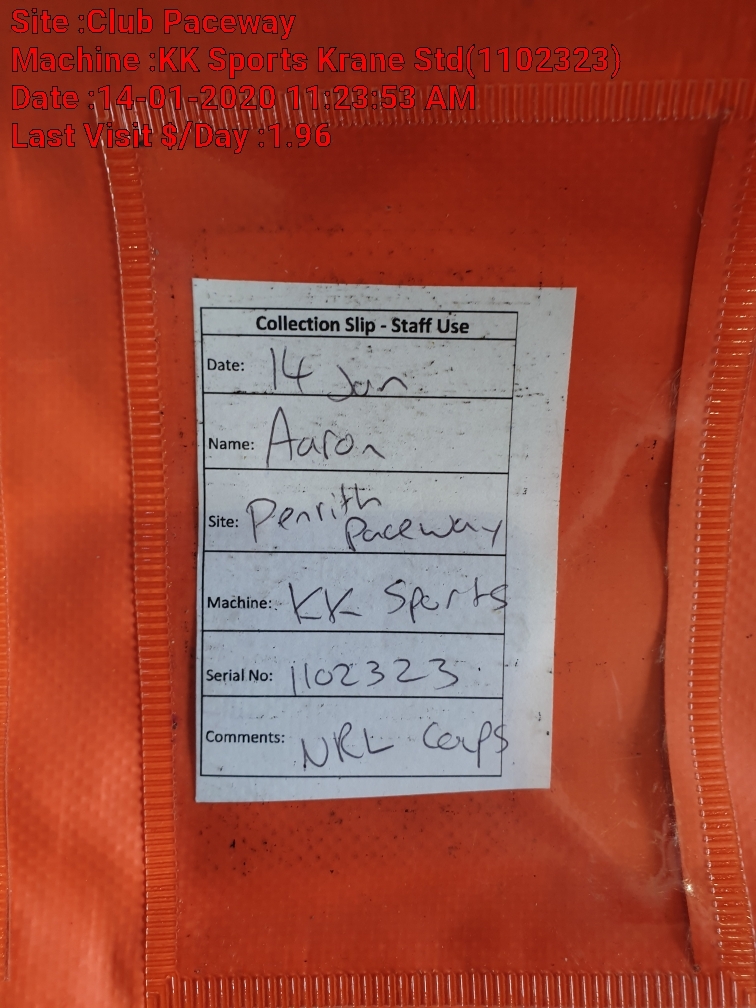 Site :Club Paceway
Machine :KK Sports Krane Std(1102323)
Date :14-01-2020 11:23:53 AM
Last Visit $/Day :1.96
Collection Slip - Staff Use
Date: 14 Jan
Name: Aaron
Site: Penrith
Paceway
Machine: KK Sports
Serial No: 1102323
Comments: NRL